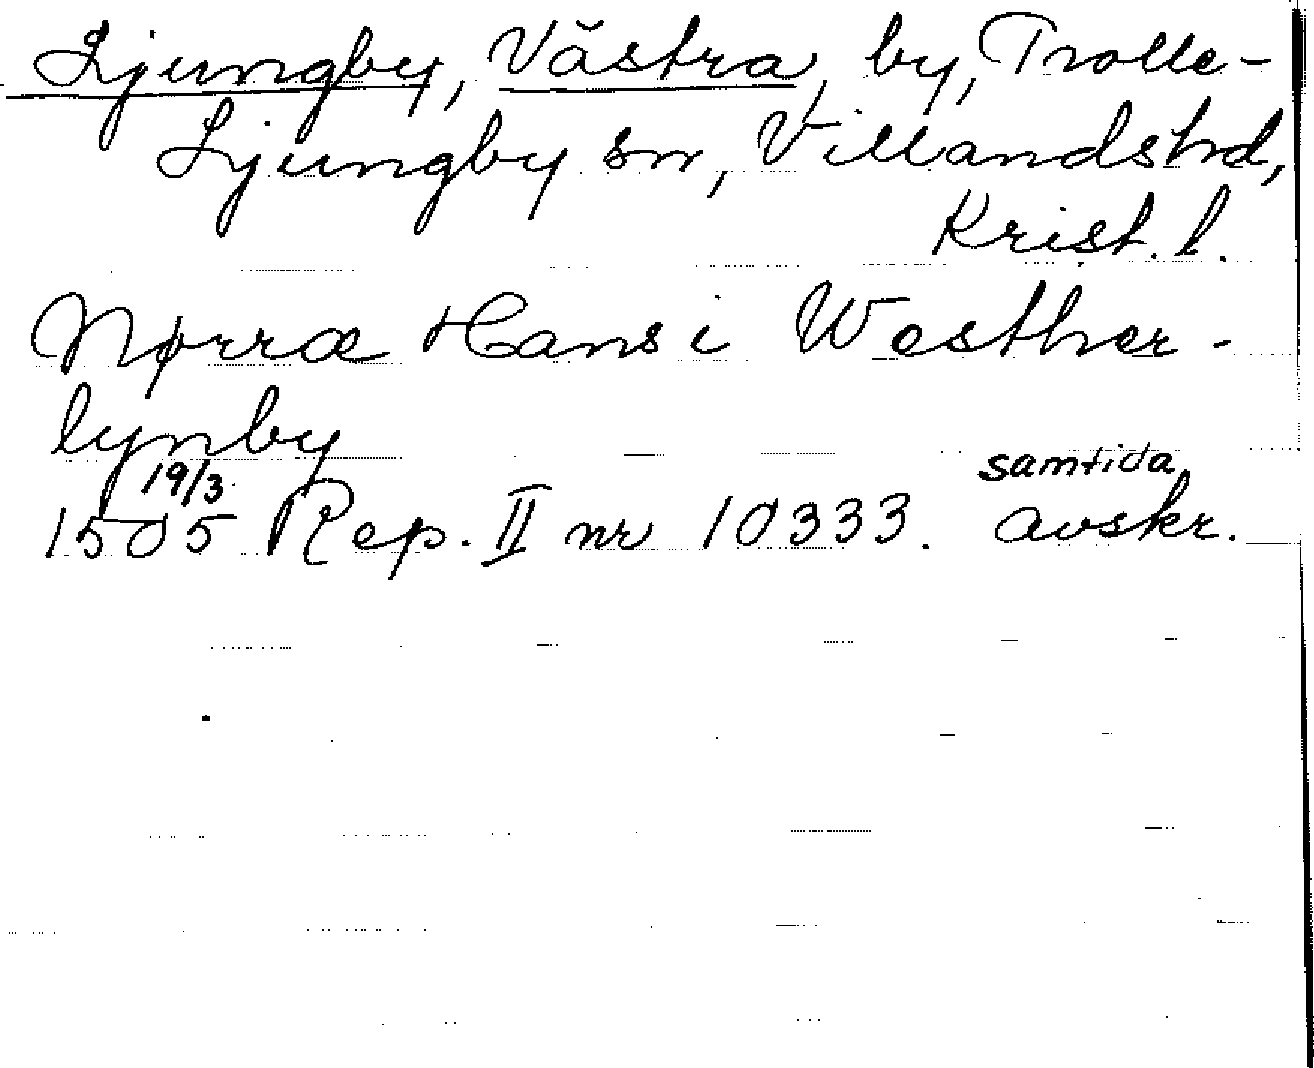 Ljungby, Västra, by, Trolle-
Ljungby sn, Villands hd,
Krist. l.
Nørræ Hans i Westher-
lynby
19/3 samtida
1505 Rep. II nr 10333. avskr.